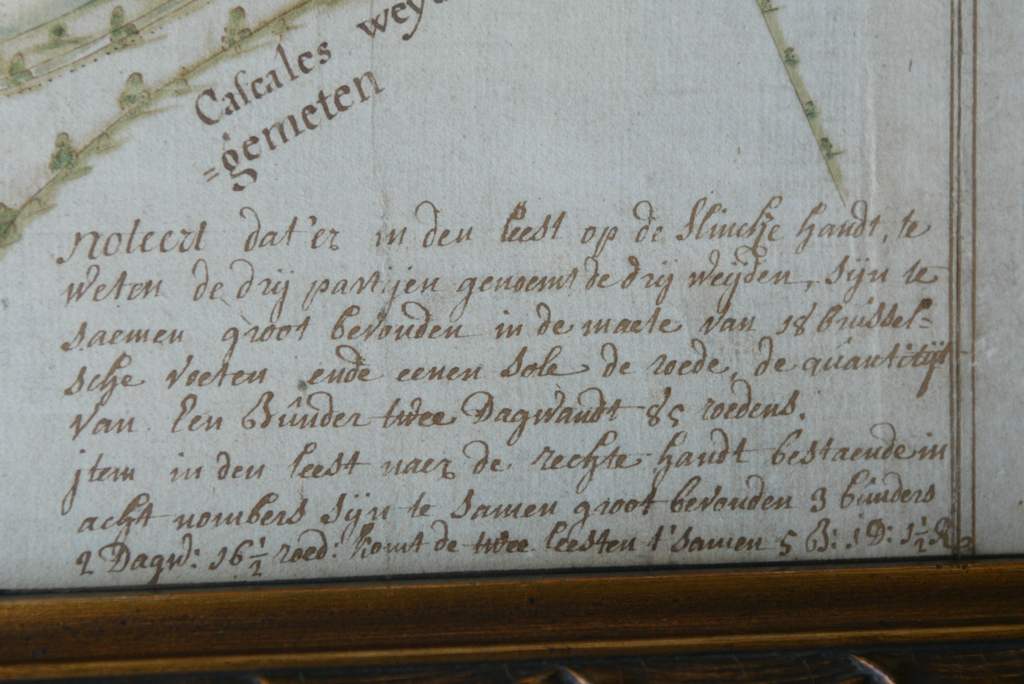 Cascales weyd
=gemeten
Noteert dat'er in den leest op de slincke handt, te
weten de drij partijen genoemt de drij weyden, sijn te
saemen groot bevonden in de maete van 18 brussel=
sche voeten ende eenen sole de roede, de quantitijt
van Een Bunder twee Dagwandt 85 roedens.
jtem in den leest naer de rechte handt bestaende in
acht nombers sijn te samen groot bevonden 3 bunders
2 Dagw: 16½ roed: komt de twee leesten t'samen 5 B: 1 D: 1½ R